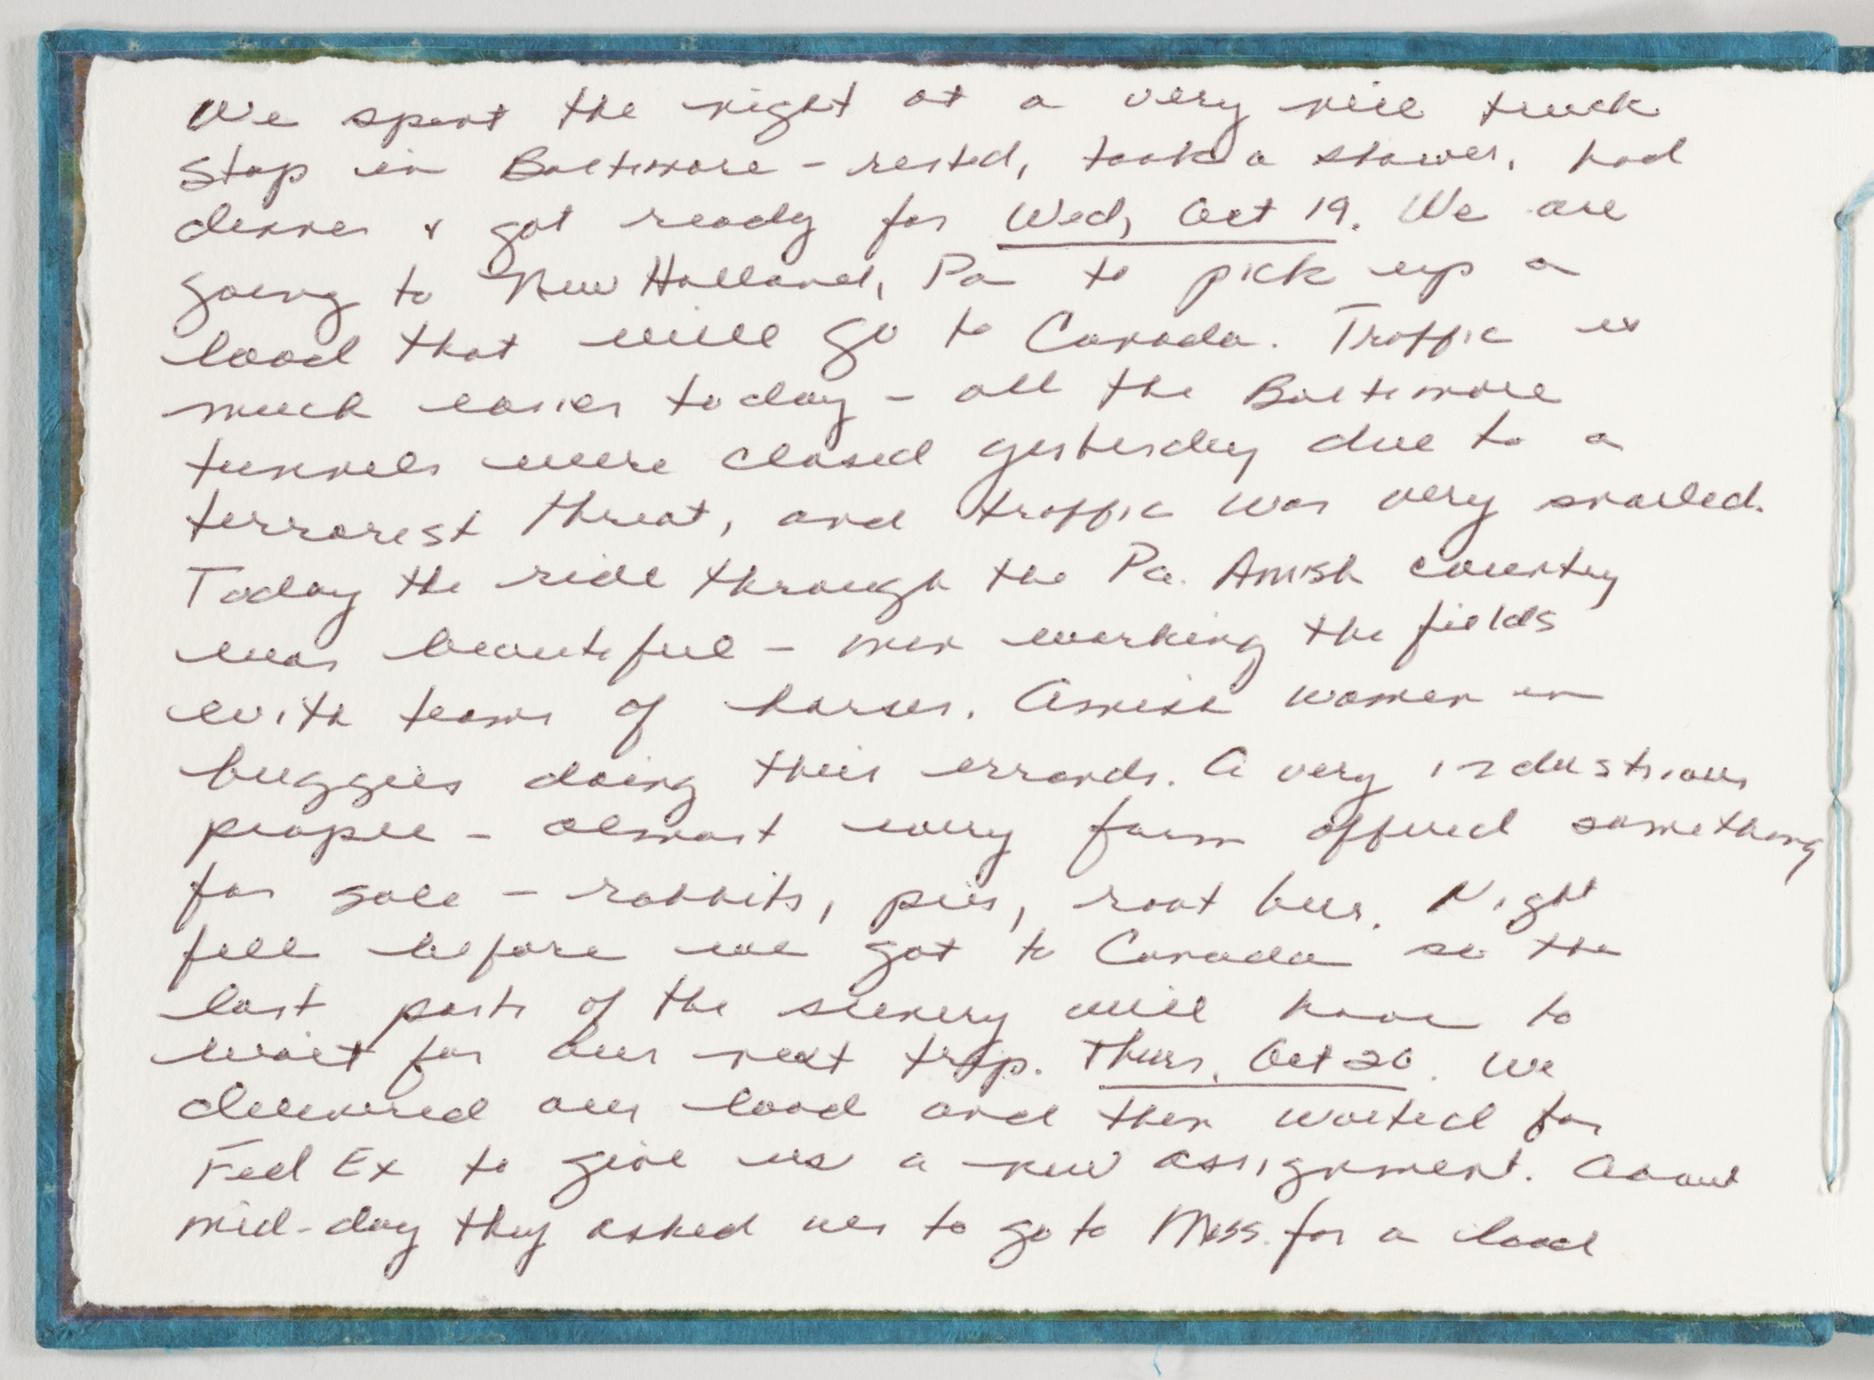 We spent the night at a very nice truck
stop in Baltimore - rested, took a shower, had
dinner & got ready for Wed, Oct 19. We are
going to New Holland, Pa to pick up a
load that will go to Canada. Traffic is
much easier today - all the Baltimore
tunnels were closed yesterday due to a
terrorest threat, and traffic was very snarled.
Today the ride through the Pa. Amish country
was beautiful - men working the fields
with teams of horses. Amish women in
buggies doing their errands. A very industrious
people - almost every farm offered something
for sale - rabbits, pies, root beer. Night
fell before we got to Canada so the
last parts of the scenery will have to
wait for our next trip. Thurs, Oct 20. We
delivered our load and then waited for
Fed Ex to give us a new assignment. About
mid-day they asked us to go to Miss. for a load